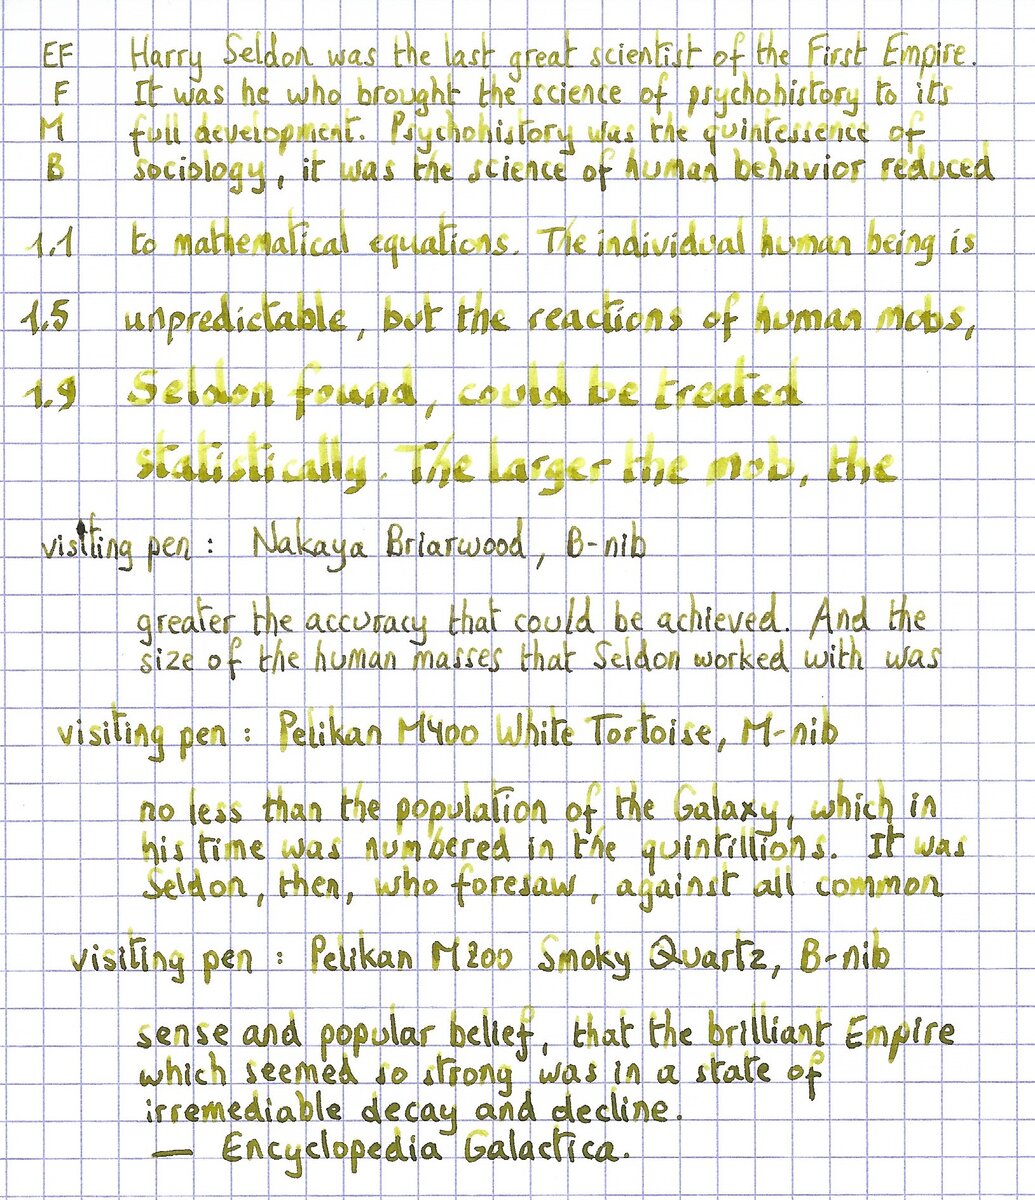 EF Harry Seldon was the last great scientist of the First Empire.
F It was he who brought the science of psychohistory to its
M full development. Psychohistory was the quintessence of
B sociology, it was the science of human behavior reduced
1.1 to mathematical equations. The individual human being is
1.5 unpredictable, but the reactions of human mobs,
1.9 Seldon found, could be treated
statistically. The larger the mob, the
visiting pen : Nakaya Briarwood, B-nib
greater the accuracy that could be achieved. And the
size of the human masses that Seldon worked with was
visiting pen : Pelikan M400 White Tortoise, M-nib
no less than the population of the Galaxy, which in
his time was numbered in the quintillions. It was
Seldon, then, who foresaw, against all common
visiting pen : Pelikan M200 Smoky Quartz, B-nib
sense and popular belief, that the brilliant Empire
which seemed so strong was in a state of
irremediable decay and decline.
— Encyclopedia Galactica.